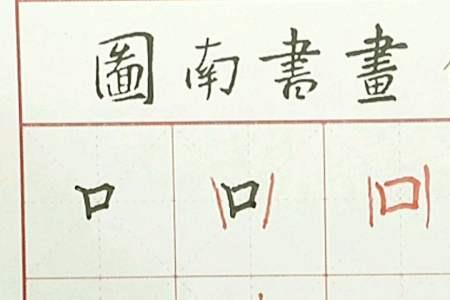 圖南書畫
口 口 口